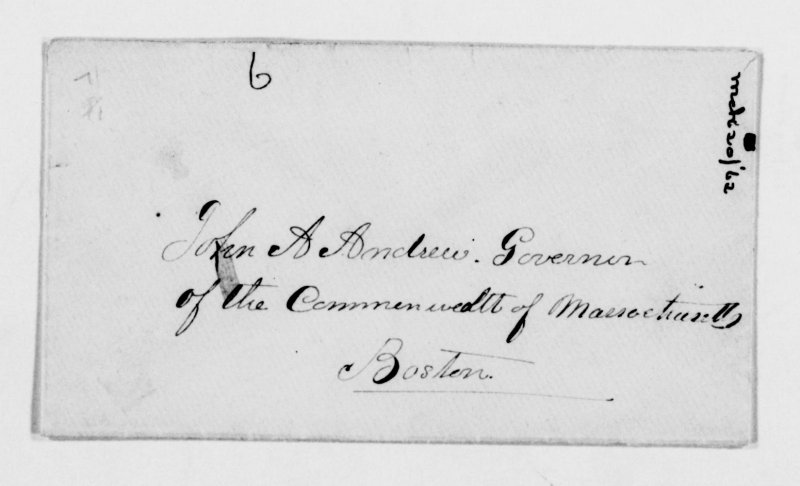 6
Mch 20/62
John A Andrew. Governor
of the Commonwealth of Massachusetts
Boston.